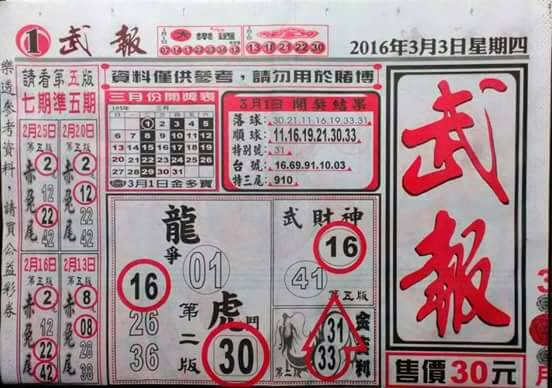 1 武報
13.16.21.22.30
2016年3月3日星期四
樂透參考資料，請買公益彩券
請看第五版
七期準五期
資料僅供參考，請勿用於賭博
2月25日
第五版
赤兔尾
2
12
22
42
2月20日
第五版
赤兔尾
2
12
22
42
2月16日
第五版
赤兔尾
2
12
22
42
2月13日
第五版
赤兔尾
8
08
28
38
三月份開獎表
105年 三月
1 2 3 4 5
6 7 8 9 10 11 12
13 14 15 16 17 18 19
20 21 22 23 24 25 26
27 28 29 30 31
3月1日金多寶
3月1日開獎結果
落球: 30.21.11.16.19.33.31
順球: 11.16.19.21.30.33
特別號: 31
台號: 16.69.91.10.03
特三尾: 910
龍爭
虎鬥
第二版
01
16
26
36
30
武財神
16
41
第五版
31
33
第二版
武報
售價30元